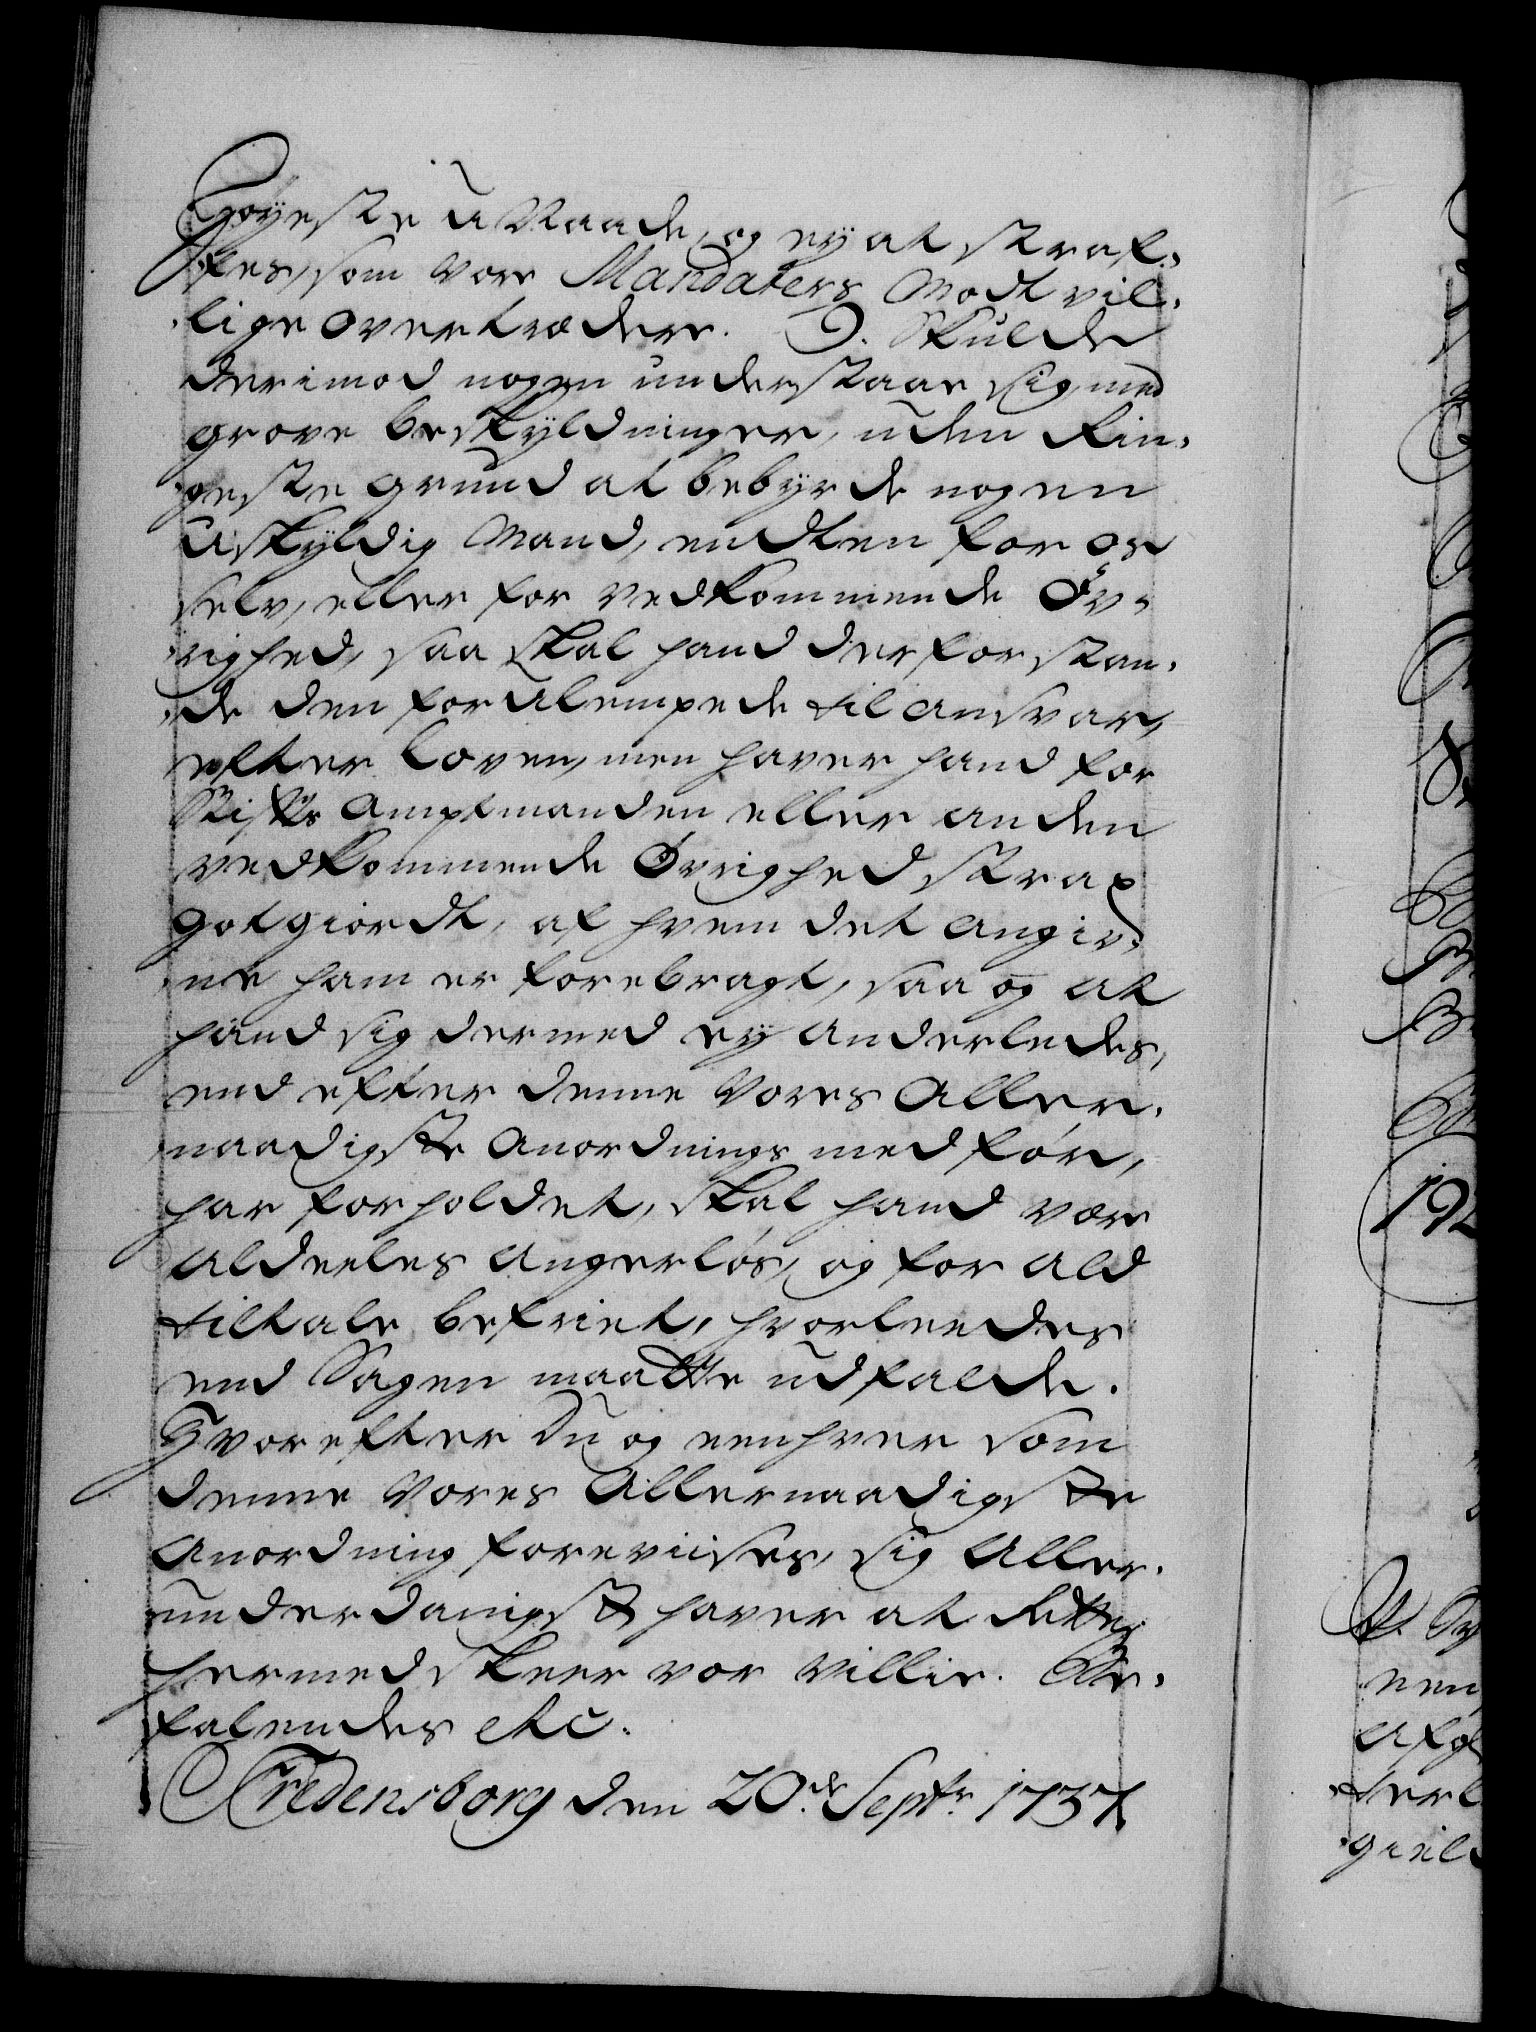 Høyeste Unaade, og ey at straf-
fes, som vore Mandaters Modtvil-
lige overtrædere. 9. Skulde
derimod nogen understaae sig med
grove beskyldninger, uden Rin-
geste grund at bebyrde nogen
uskyldig Mand, endten for os
selv, eller for vedkommende Øv-
righed, saa skal hand derfor stan-
de den forulempede til ansvar,
efter Loven, men haver hand for
Stifts Amptmanden eller anden
vedkommende Øvrighed strax
gotgiordt, af hvem det angiv-
ne ham er forebragt, saa og at
hand sig dermed ey anderledes,
end efter denne Vores Aller-
naadigste Anordnings medfør,
har forholdet, skal hand være
aldeeles angerløs, og for ald
tiltale befriet, hvorleedes
end Sagen maatte udfalde.
Hvorefter Du og eenhver som
denne Vores Allernaadigste
Anordning foreviises, sig Aller-
underdanigst haver at Rette,
hermed skeer vor Villie. Be-
falendes etc.
Fredensborg den 20de Septr 1737
192